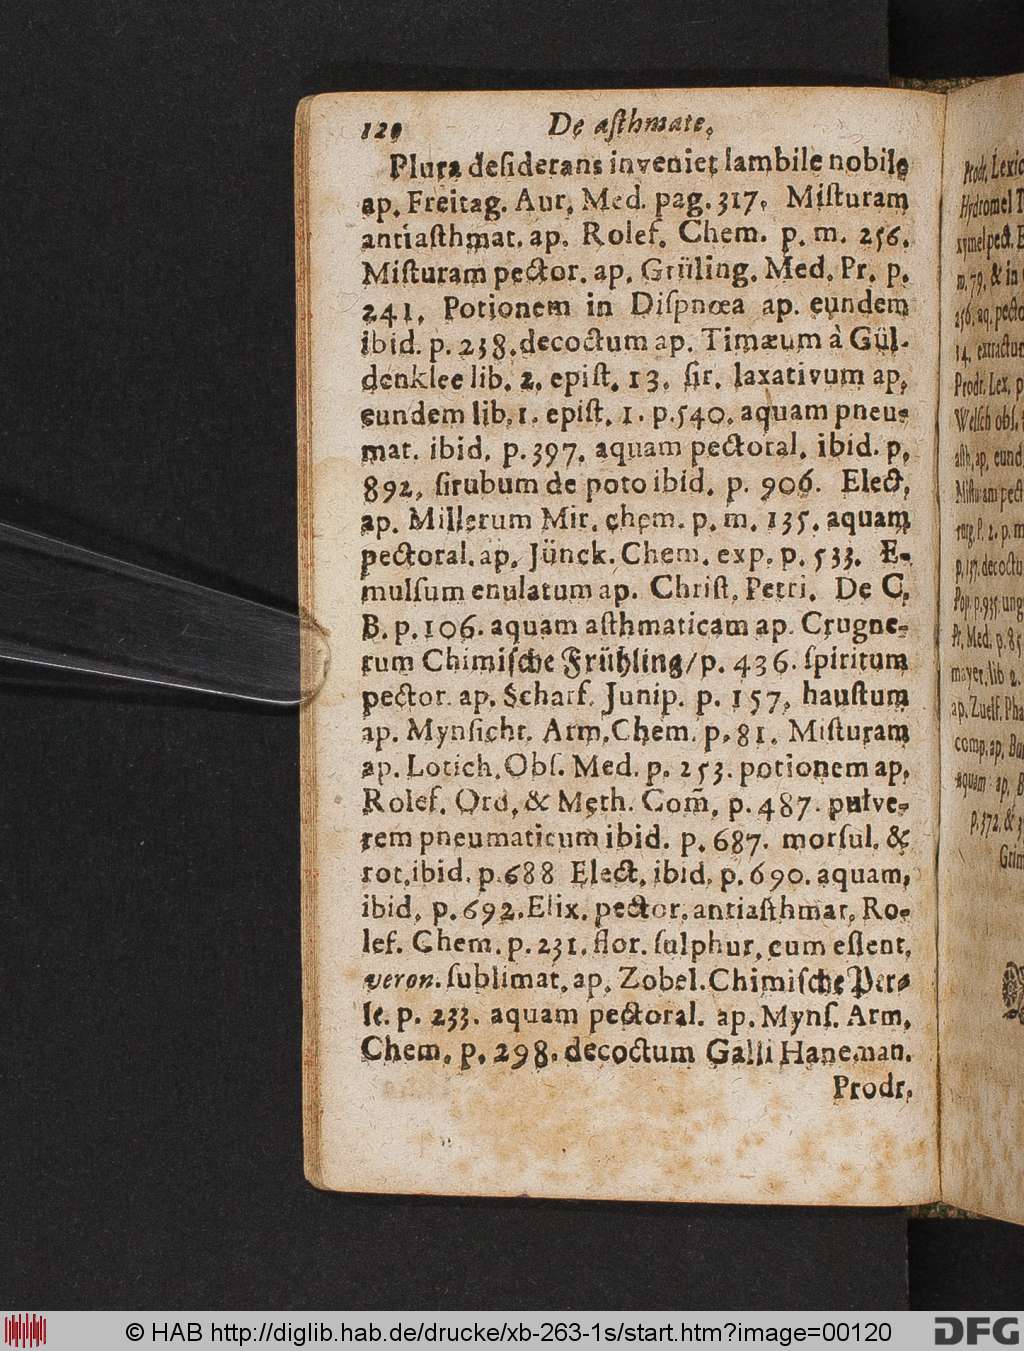 120 De aſthmate.
Plura deſiderans inveniet lambile nobile
ap. Freitag. Aur. Med. pag. 317. Miſturam
antiaſthmat. ap. Rolef. Chem. p. m. 256.
Miſturam pector. ap. Grüling. Med. Pr. p.
241. Potionem in Diſpnœa ap. eundem
ibid. p. 238. decoctum ap. Timæum à Gül-
denklee lib. 2. epiſt. 13. ſir. laxativum ap.
eundem lib. 1. epiſt. 1. p. 540. aquam pneu-
mat. ibid. p. 397. aquam pectoral. ibid. p.
892. ſirubum de poto ibid. p. 906. Elect.
ap. Millerum Mir. chem. p. m. 135. aquam
pectoral. ap. Jünck. Chem. exp. p. 533. E-
mulſum enulatum ap. Chriſt. Petri. De C.
B. p. 106. aquam aſthmaticam ap. Crugne-
rum Chimiſche Frühling/ p. 436. ſpiritum
pector. ap. Scharf. Junip. p. 157. hauſtum
ap. Mynſicht. Arm. Chem. p. 81. Miſturam
ap. Lotich. Obſ. Med. p. 253. potionem ap.
Rolef. Ord. & Meth. Com̃. p. 487. pulve-
rem pneumaticum ibid. p. 687. morſul. &
rot. ibid. p. 688 Elect. ibid. p. 690. aquam,
ibid. p. 692. Elix. pector. antiaſthmat. Ro-
lef. Chem. p. 231. flor. ſulphur. cum eſſent.
veron. ſublimat. ap. Zobel. Chimiſche Per-
le. p. 233. aquam pectoral. ap. Mynſ. Arm.
Chem. p. 298. decoctum Galli Haneman.
Prodr.
Prodr. Lexic
Hydromel T
xymel pect. E
m. 79. & in
256. aq. pecto
14. extractum
Prodr. Lex. p
Welſch obſ.
aſth. ap. eund
Miſturam pect
rurg. P. 2. p. m
p. 157. decoctu
Pop. p. 935. ung
Pr. Med. p. 85
mayer. lib 2.
ap. Zuelf. Pha
comp. ap.
aquam ap. B
p. 372. &
Grim
© HAB http://diglib.hab.de/drucke/xb-263-1s/start.htm?image=00120
DFG